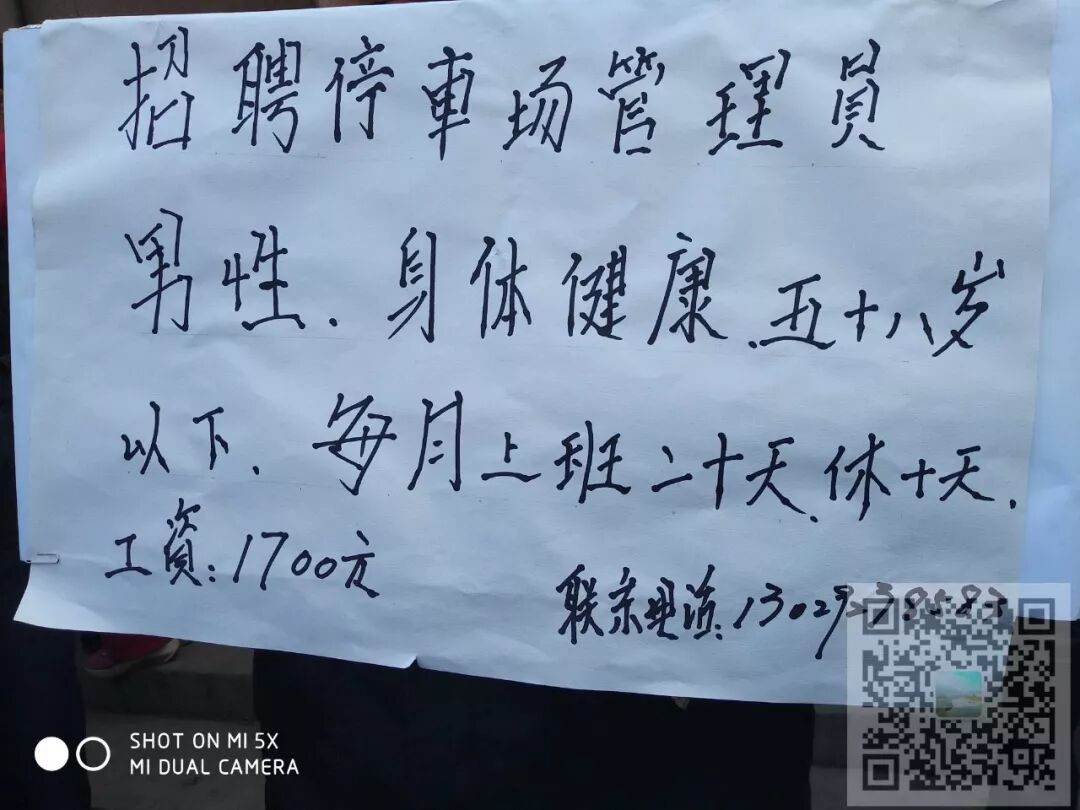 招聘停車场管理員
男性.身体健康.五十八岁
以下.每月上班二十天.休十天.
工資:1700元
联系电话:
SHOT ON MI 5X
MI DUAL CAMERA